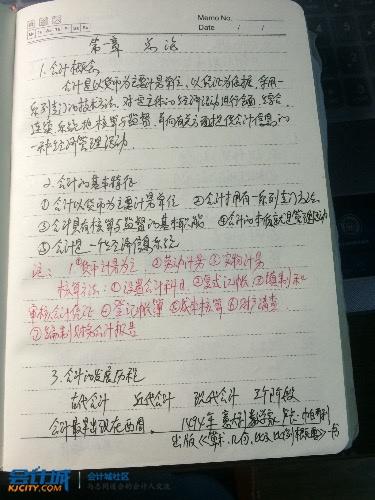 Memo No.
Mo Tu We Th Fr Sa Su
Date / /
第一章 总论
1.会计概念
会计是以货币为主要计量单位,以凭证为依据,采用一
系列专门的技术方法,对一定主体的经济活动进行全面、综合、
连续、系统地核算与监督,并向有关方面提供会计信息的
一种经济管理活动
2.会计的基本特征
①会计以货币为主要计量单位 ②会计采用有一系列专门方法
③会计具有核算与监督的基本职能 ④会计的本质就是管理活动
⑤会计是一个经济信息系统
注:1 ①货币计量为主 ②劳动计量 ③实物计量
核算方法:①设置会计科目 ②复式记帐 ③填制和
审核会计凭证 ④登记帐簿 ⑤成本核算 ⑥财产清查
⑦编制财务会计报告
3.会计的发展历程
古代会计 近代会计 现代会计 三个阶段
会计最早出现在西周 1494年 意大利数学家 卢卡·帕乔利
出版《算术、几何、比及比例概要》一书
会计城
KJCITY.COM
会计城社区
与志同道合的会计人交流